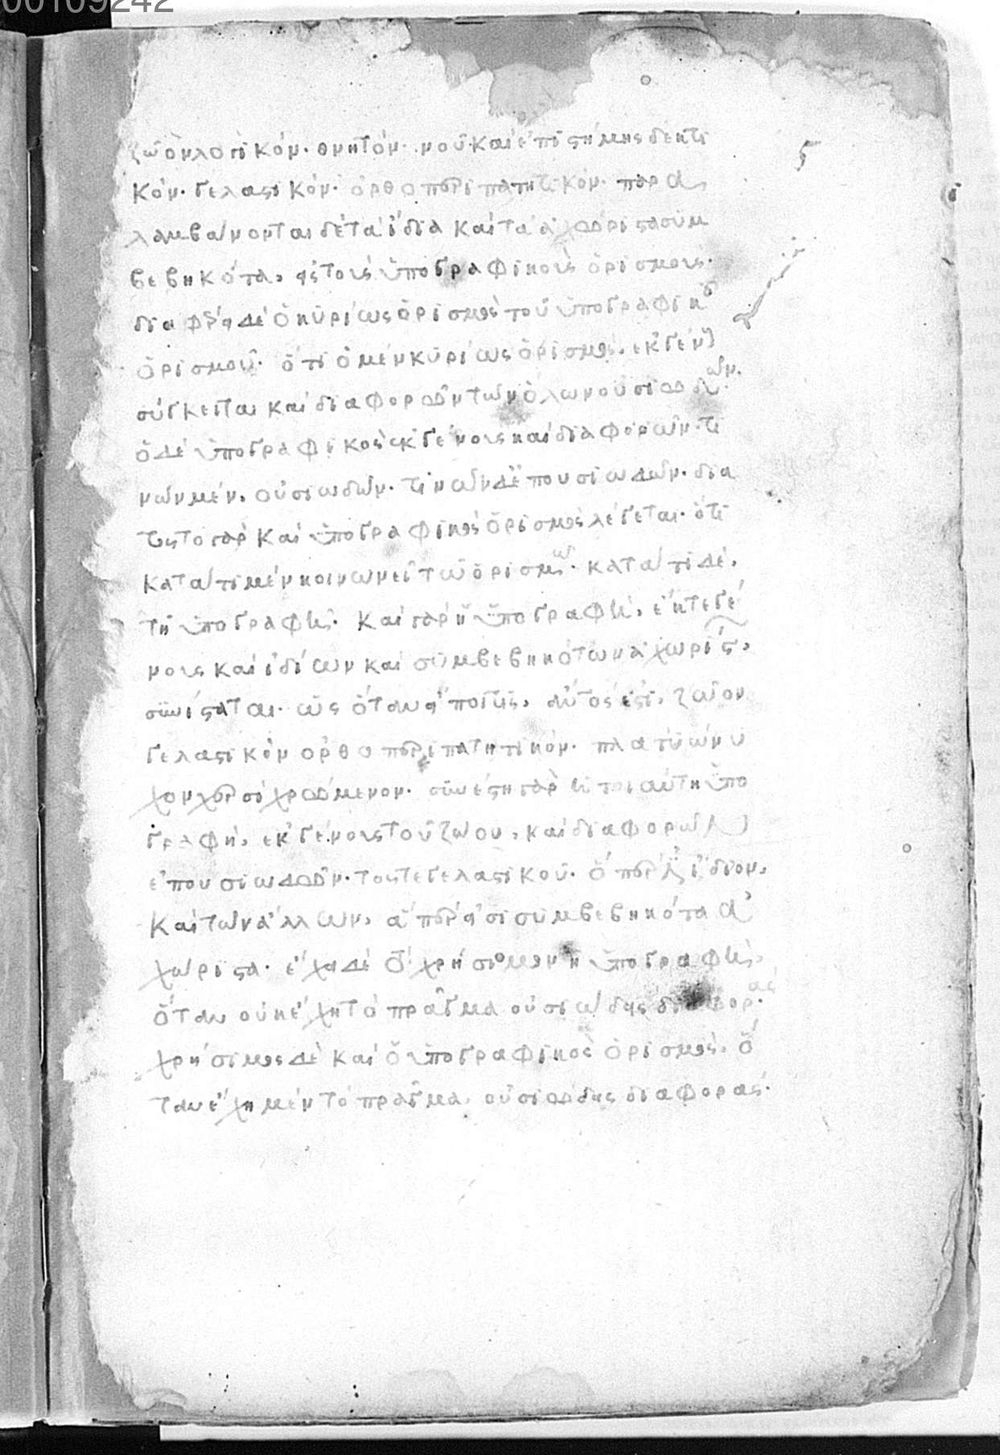 00109242
5
ζῶον λογικόν· θνητόν· νοῦ καὶ ἐπιστήμης δεκτι
κόν· γελαστικόν· ὀρθοπεριπατητικόν· παρα
λαμβάνονται δὲ τὰ ἴδια καὶ τὰ ἀχώριστα συμ
βεβηκότα, εἰς τοὺς ὑπογραφικοὺς ὁρισμούς·
διαφέρει δὲ ὁ κυρίως ὁρισμὸς τοῦ ὑπογραφικοῦ
ὁρισμοῦ· ὅτι ὁ μὲν κυρίως ὁρισμὸς, ἐκ γένους
σύγκειται καὶ διαφορῶν τῶν ὅλων οὐσιωδῶν·
ὁ δὲ ὑπογραφικὸς ἐκ γένους καὶ διαφορῶν· τι
νῶν μὲν, οὐσιωδῶν· τινῶν δὲ ἐπουσιωδῶν· δια
τοῦτο γὰρ καὶ ὑπογραφικὸς ὁρισμὸς λέγεται· ὅτι
κατά τι μὲν κοινωνεῖ τῶ ὁρισμῶ· κατά τι δὲ,
τῆ ὑπογραφῆ· καὶ γὰρ ἡ ὑπογραφὴ, ἔκ τε γέ
νους καὶ ἰδίων καὶ συμβεβηκότων ἀχωρίστ,
συνίσταται· ὡς ὅταν εἴποι τις, αὐτός ἐστι, ζῶον
γελαστικὸν ὀρθοπεριπατητικόν· πλατυώνυ
χον χερσὶ χρώμενον· συνέστη γὰρ ἡ τοιαύτη ὑπο
γραφὴ, ἐκ γένους τοῦ ζώου, καὶ διαφορῶν
ἐπουσιωδῶν· τοῦ τε γελαστικοῦ· ὅπερ ἐστὶ ἴδιον,
καὶ τῶν ἄλλων, ἅπερ εἰσὶ συμβεβηκότα ἀ
χώριστα· ἔχει δὲ τὸ χρήσιμον ἡ ὑπογραφὴ,
ὅταν οὐκ ἔχη τὸ πρᾶγμα οὐσιώδης διαφοράς·
χρήσιμος δὲ καὶ ὁ ὑπογραφικὸς ὁρισμὸς, ὅ
ταν ἔχη μὲν τὸ πρᾶγμα, οὐσιώδης διαφοράς·